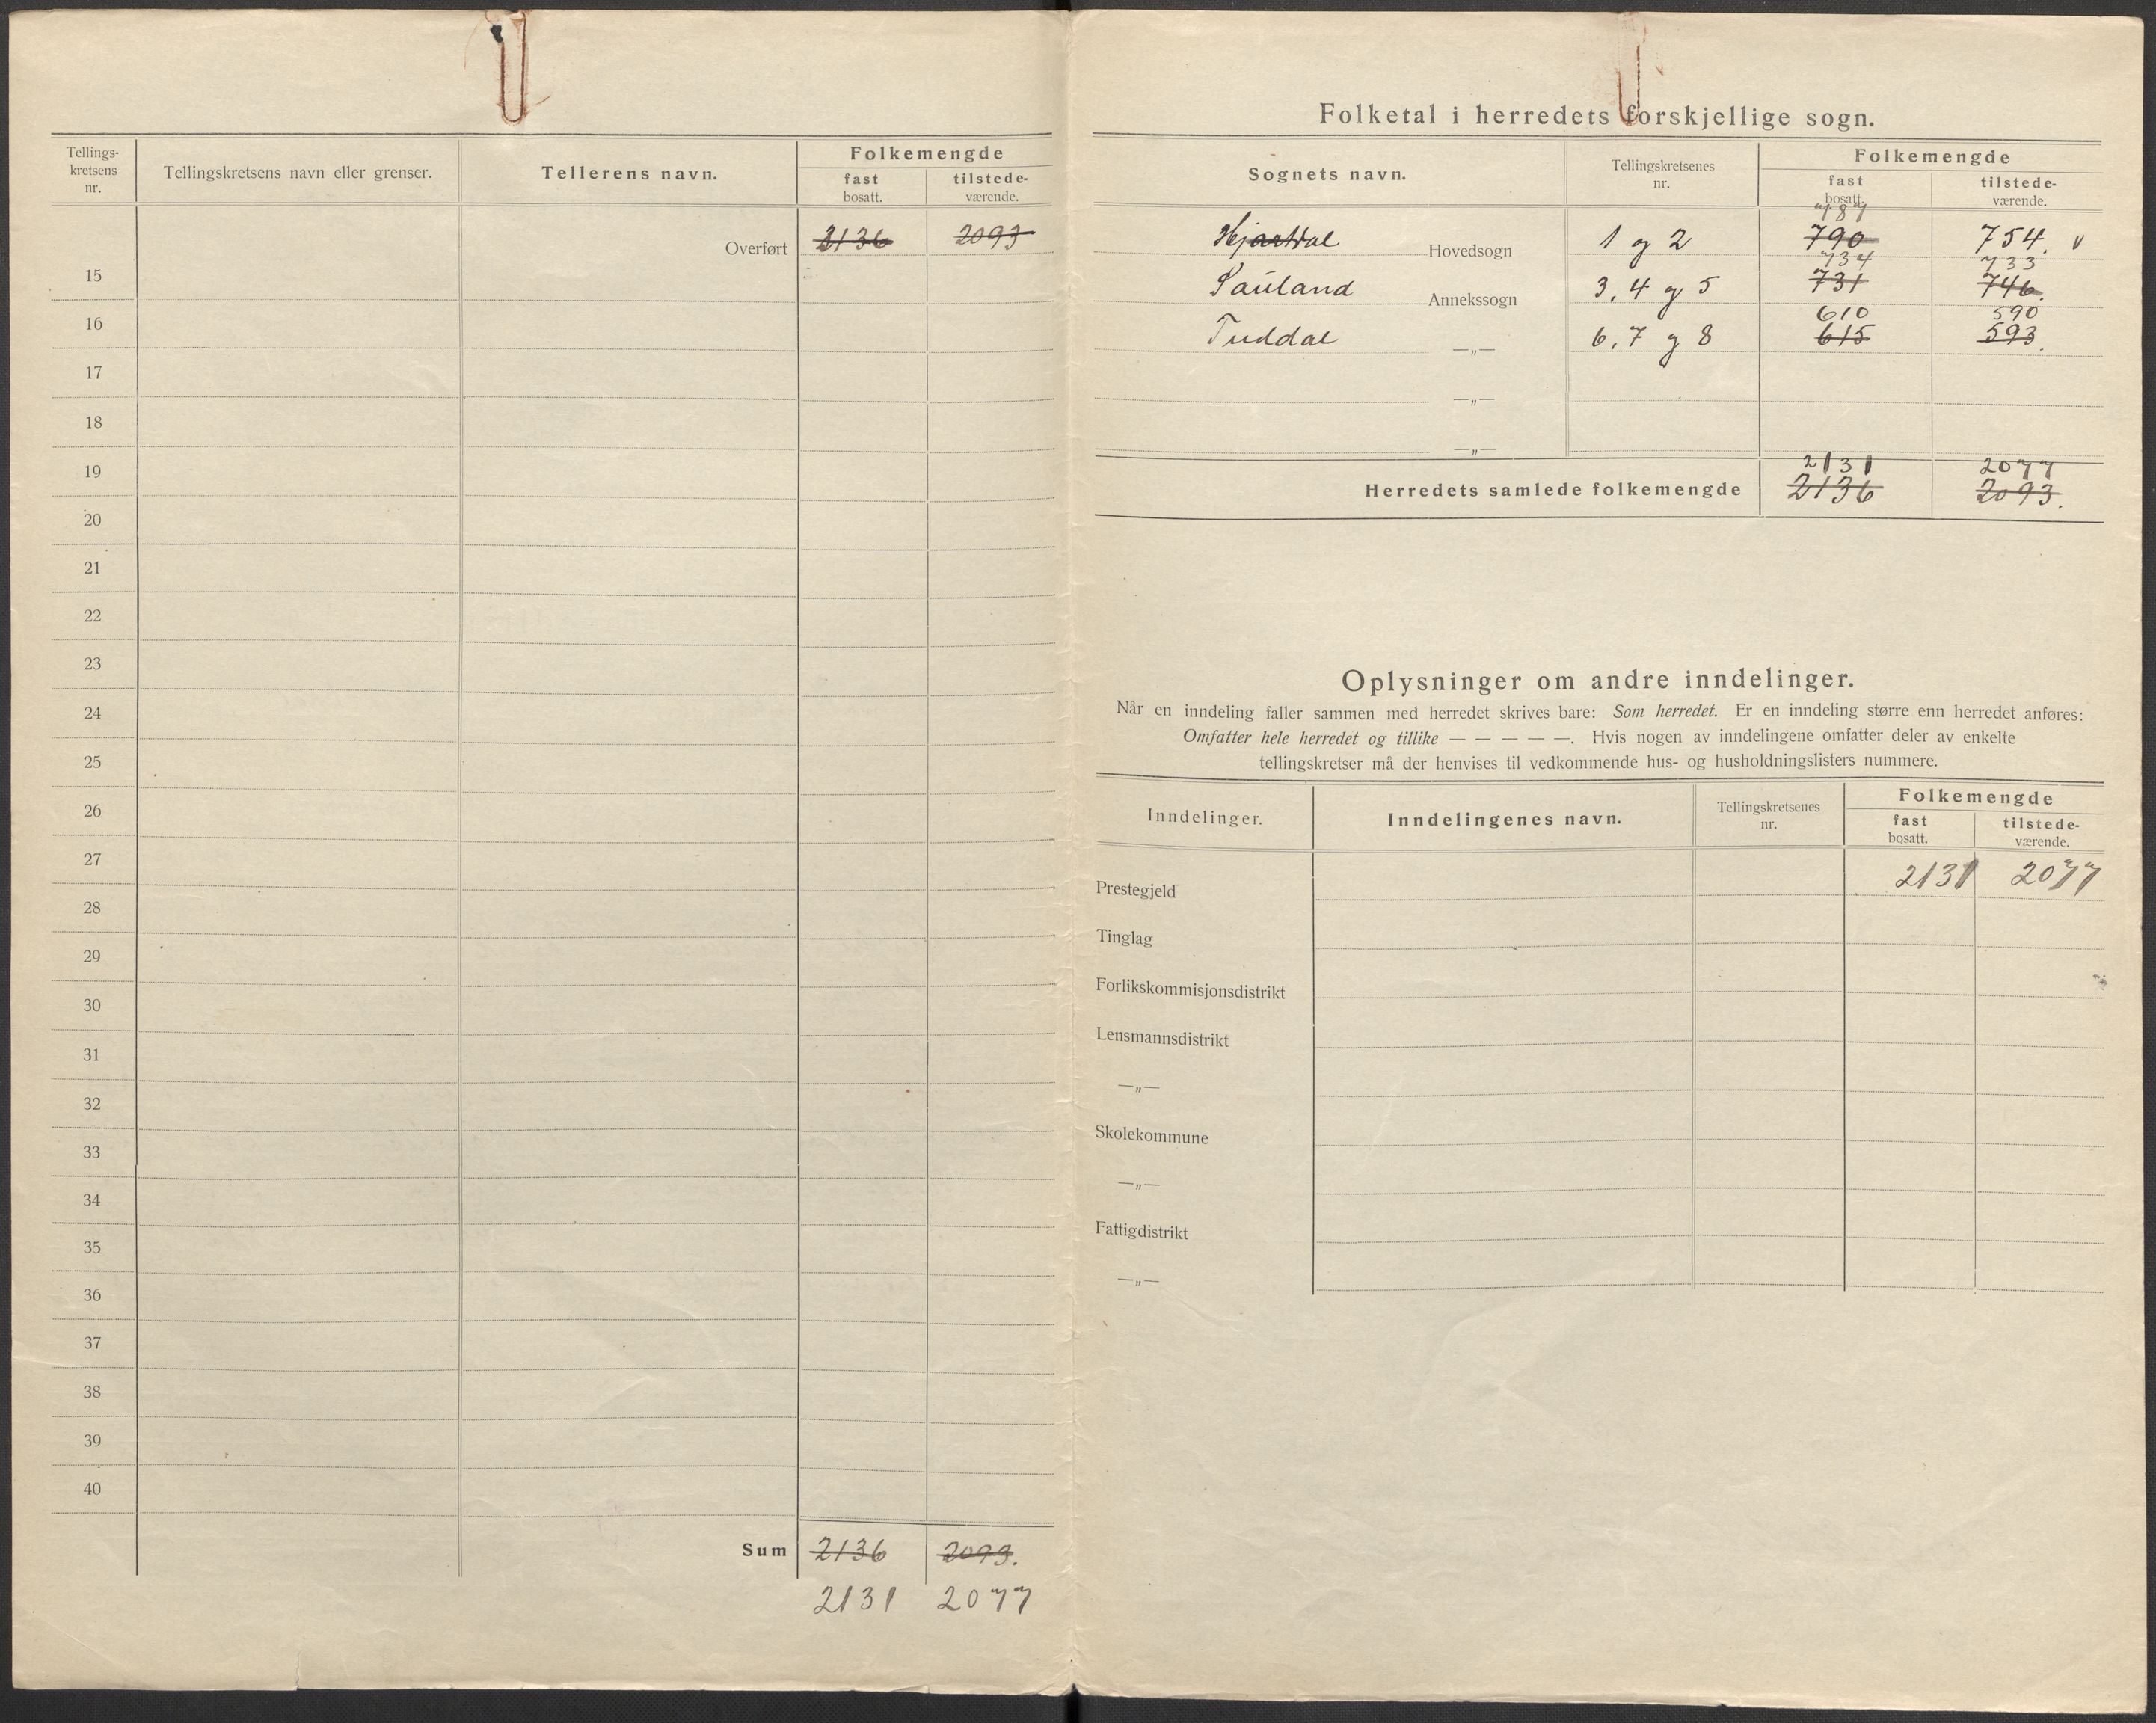 Tellings-
kretsens
nr.
Tellingskretsens navn eller grenser.
Tellerens navn.
Folkemengde
fast
bosatt.
tilstede-
værende.
Overført 2136 2093
15
16
17
18
19
20
21
22
23
24
25
26
27
28
29
30
31
32
33
34
35
36
37
38
39
40
Sum 2136 2093.
2131 2077
Folketal i herredets forskjellige sogn.
Sognets navn.
Tellingskretsenes
nr.
Folkemengde
fast
bosatt.
tilstede-
værende.
787
Hjartdal Hovedsogn 1 og 2 790 754. v
734 733
Sauland Annekssogn 3, 4 og 5 731 746.
610 590
Tuddal —„— 6, 7 og 8 615 593.
—„—
—„—
2131 2077
Herredets samlede folkemengde 2136 2093.
Oplysninger om andre inndelinger.
Når en inndeling faller sammen med herredet skrives bare: Som herredet. Er en inndeling større enn herredet anføres:
Omfatter hele herredet og tillike — — — — —. Hvis nogen av inndelingene omfatter deler av enkelte
tellingskretser må der henvises til vedkommende hus- og husholdningslisters nummere.
Inndelinger.
Inndelingenes navn.
Tellingskretsenes
nr.
Folkemengde
fast
bosatt.
tilstede-
værende.
Prestegjeld 2131 2077
Tinglag
Forlikskommisjonsdistrikt
Lensmannsdistrikt
—„—
Skolekommune
—„—
Fattigdistrikt
—„—